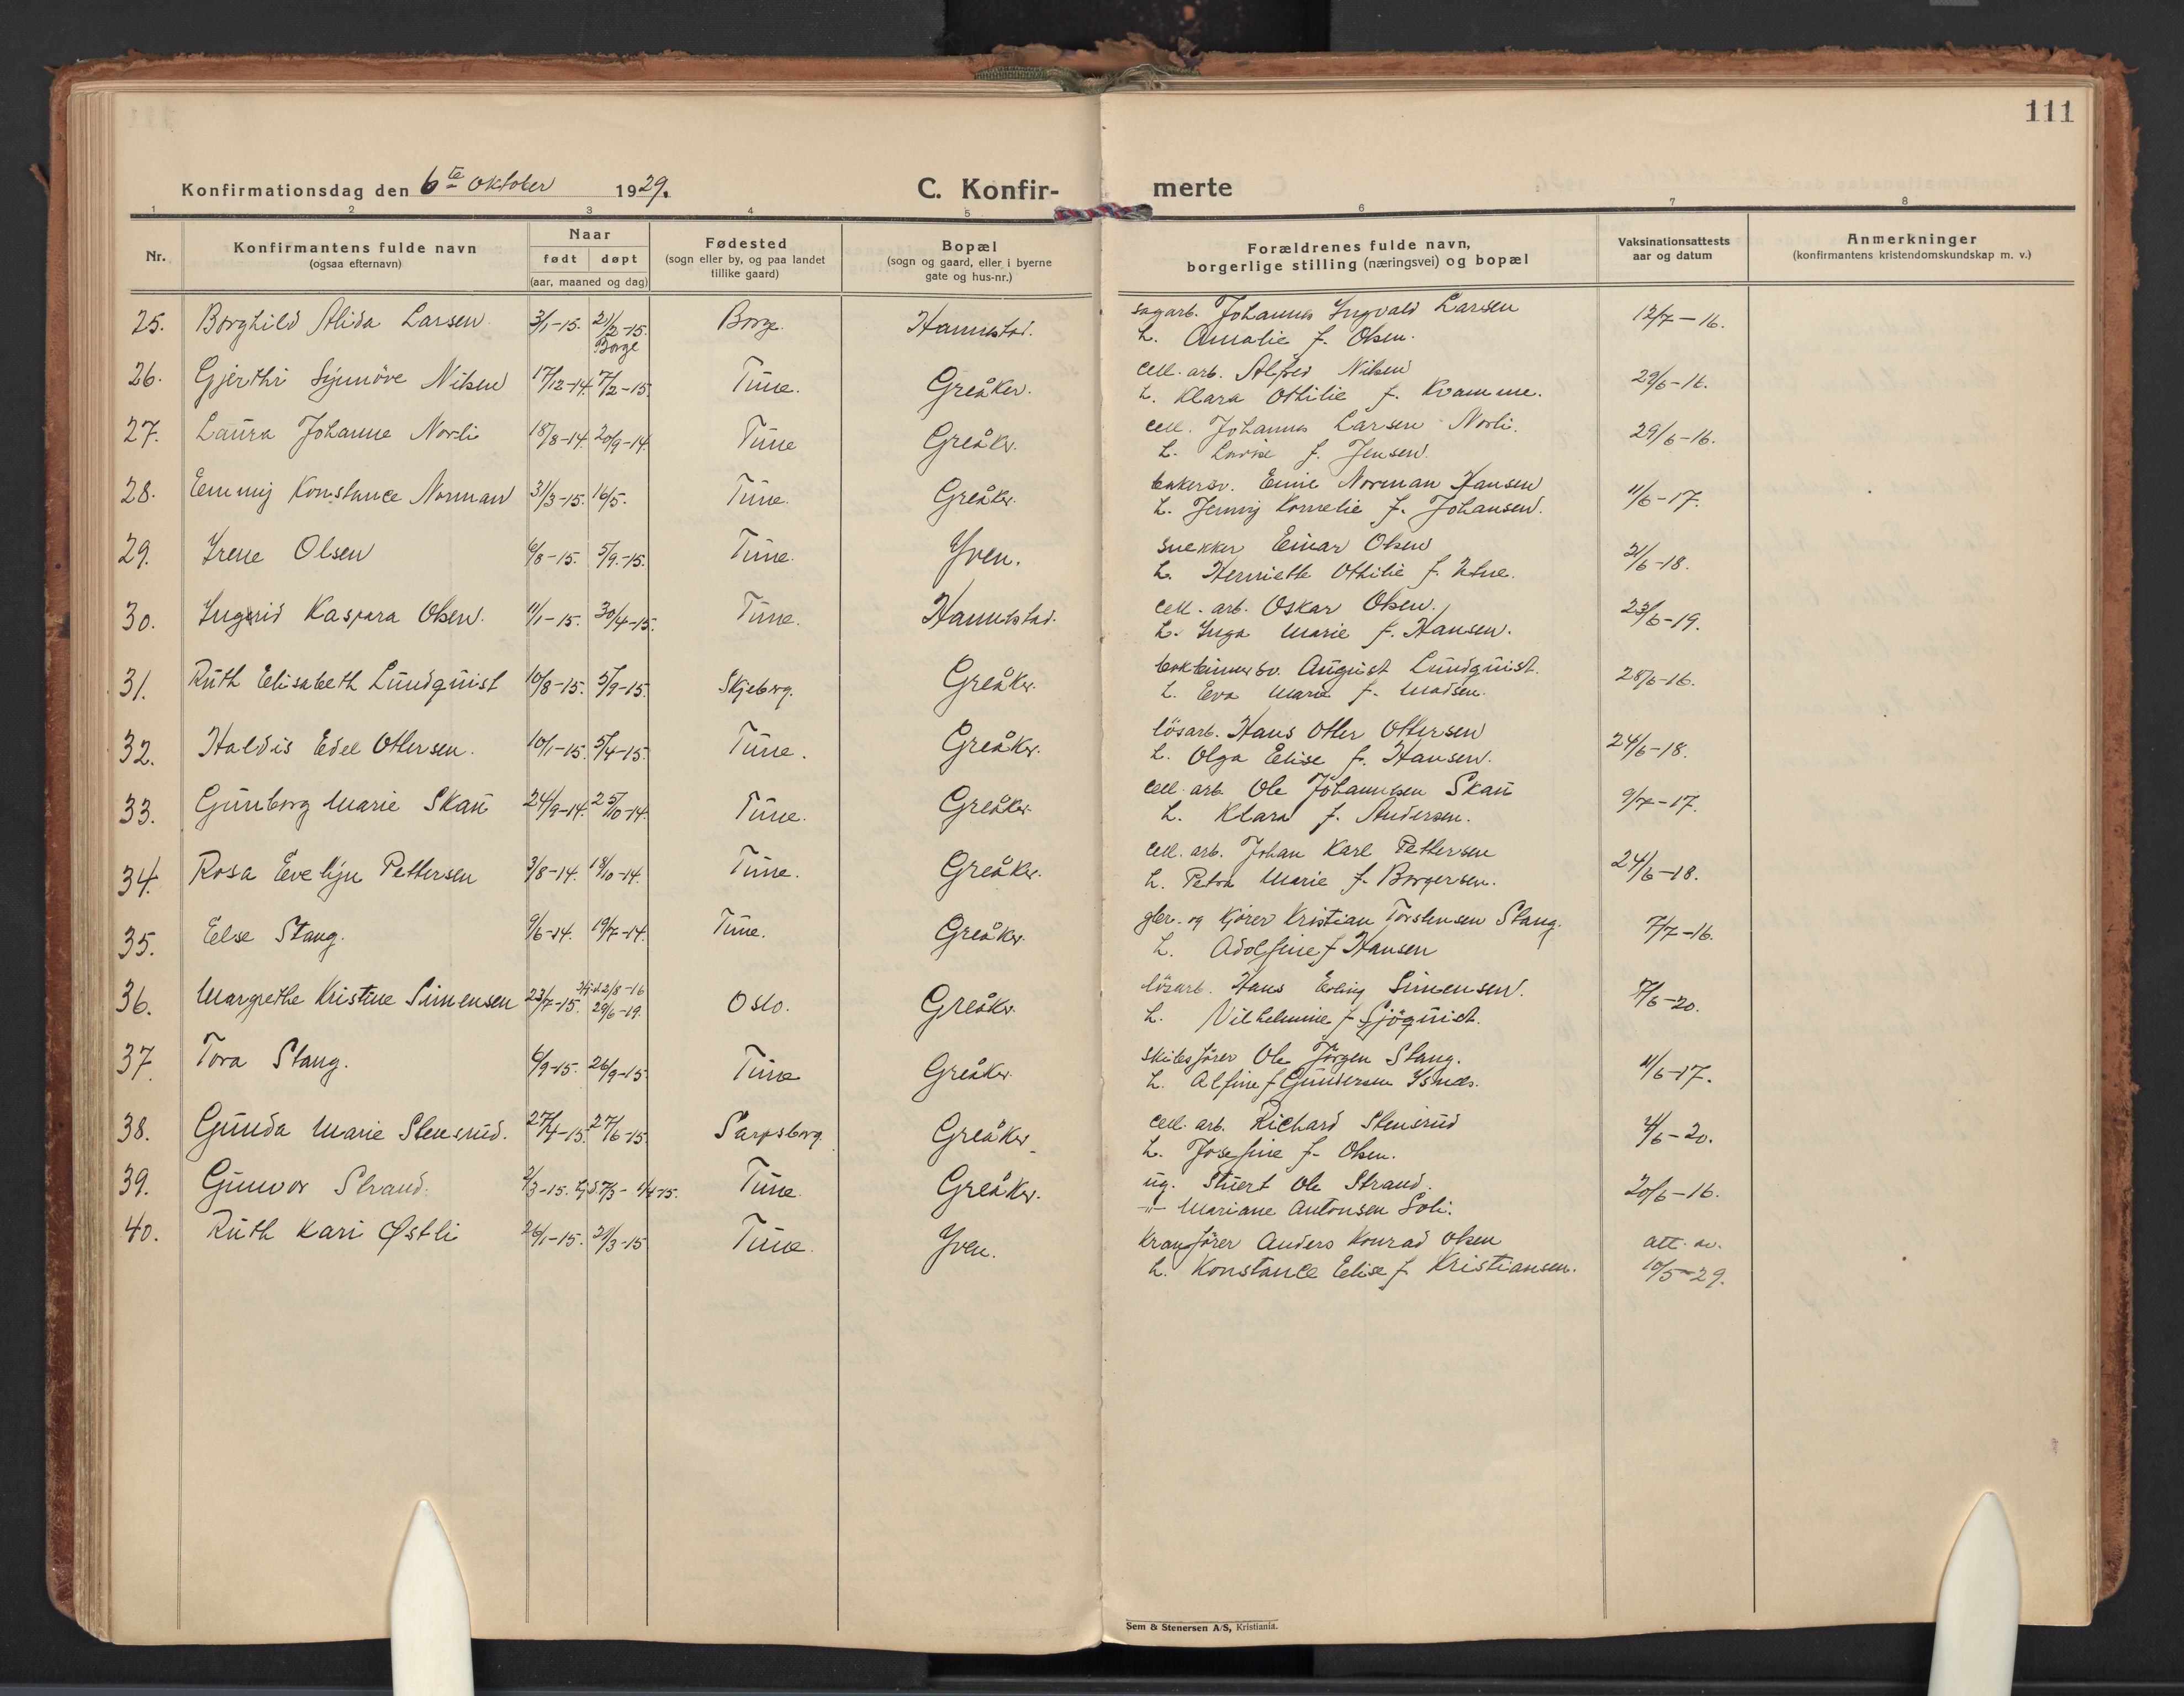 111
Konfirmationsdag den 6te oktober 1929.
C. Konfir- merte
1 2 3 4 5 6 7 8
Nr.
Konfirmantens fulde navn
(ogsaa efternavn)
Naar
født døpt
(aar, maaned og dag)
Fødested
(sogn eller by, og paa landet
tillike gaard)
Bopæl
(sogn og gaard, eller i byerne
gate og hus-nr.)
Forældrenes fulde navn,
borgerlige stilling (næringsvei) og bopæl
Vaksinationsattests
aar og datum
Anmerkninger
(konfirmantens kristendomskundskap m. v.)
25. Borghild Alida Larsen 3/1-15. 21/2-15. Borge. Hannestad. sagarb. Johannes Ingvald Larsen 12/7-16.
Borge h. Amalie f. Olsen.
26. Gjerthi Synnöve Nilsen 17/12-14. 7/2-15. Tune. Greåker. cell. arb. Alfred Nilsen 29/6-16.
h. Klara Othilie f. Kvamme.
27. Laura Johanne Norli 18/8-14. 20/9-14. Tune Greåker. cell. Johannes Larsen Norli. 29/6-16.
h. Lovise f. Jensen.
28. Emmy Konstance Norman 31/3-15. 16/5. Tune. Greåker. bakersv. Norman Hansen 11/6-17.
h. Jenny Kornelie f. Johansen.
29. Irene Olsen 6/8-15. 5/9-15. Tune. Yven. snekker Einar Olsen 21/6-18.
h. Henriette Othilie f. Utne.
30. Ingrid Kaspara Olsen. 11/1-15. 30/4-15. Tune. Hannestad. cell. arb. Oskar Olsen. 23/6-19.
h. Inga Marie f. Hansen.
31. Ruth Elisabeth Lundquist 10/8-15. 5/9-15. Skjeberg. Greåker. bokbindersv. August Lundquist. 28/6-16.
h. Eva Marie f. Madsen.
32. Haldis Edel Ottersen. 10/1-15. 5/4-15. Tune. Greåker. lösarb. Hans Otter Ottersen 24/6-18.
h. Olga Elise f. Hansen.
33. Gunborg Marie Skau 24/9-14. 25/10-14. Tune. Greåker. cell. arb. Ole Johannesen Skau 9/7-17.
h. Klara f. Andersen.
34. Rosa Evelyn Pettersen 3/8-14. 18/10-14. Tune. Greåker. cell. arb. Johan Karl Pettersen 24/6-18.
h. Petra Marie f. Borgersen.
35. Else Stang. 9/6-14. 19/7-14. Tune. Greåker. og kjörer Kristian Torstensen Stang. 7/7-16.
h. Adolfine f Hansen
36. Margrethe Kristine Simensen 23/7-15. 2/8-16 29/6-19. Oslo. Greåker. lösarb. Hans Erling Simensen. 7/6-20.
h. Vilhelmine f Sjöquist.
37. Tora Stang. 6/9-15. 26/9-15. Tune Greåker. skibsförer Ole Jörgen Stang. 11/6-17.
h. Alfine f Gundersen
38. Gunda Marie Stensrud. 27/4-15. 27/6-15. Sarpsborg Greåker. cell. arb. Richard Stensrud 4/6-20.
h. Josefine f. Olsen.
39. Gunvor Strand. 2/3-15. Tune. Greåker. ug. Stuert Ole Strand. 20/6-16.
-"- Mariane Antonsen Soli.
40. Ruth Kari Østli 26/1-15. 21/3-15 Tune. Yven. Kranförer Anders Konrad Olsen att. av.
h. Konstance Elise f. Kristiansen. 10/5-29.
Sem & Stenersen A/S, Kristiania.